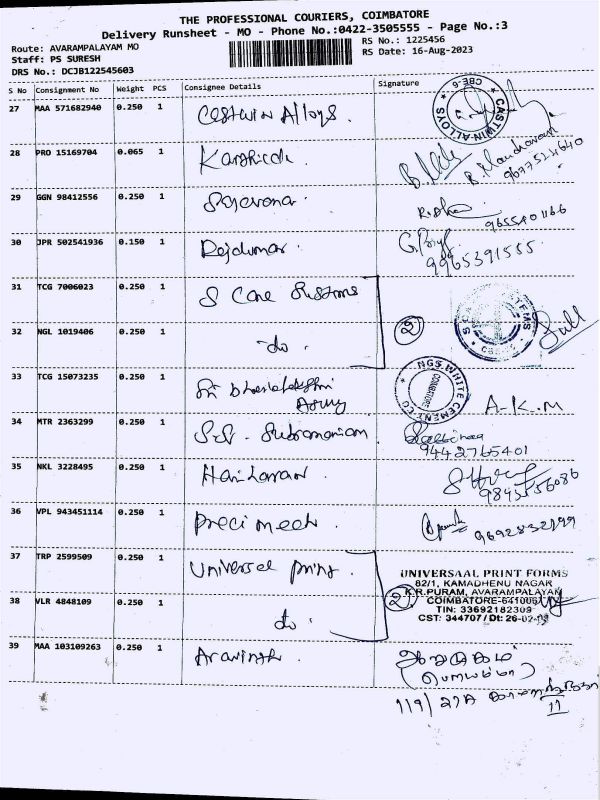 THE PROFESSIONAL COURIERS, COIMBATORE
Delivery Runsheet - MO - Phone No.:0422-3505555 - Page No.:3
Route: AVARAMPALAYAM MO
Staff: PS SURESH
DRS No.: DCJB122545603
RS No.: 1225456
RS Date: 16-Aug-2023
S No Consignment No Weight PCS Consignee Details Signature
27 MAA 571682940 0.250 1 Castwin Alloys.
CASTWIN-ALLOYS CBE-6
28 PRO 15169704 0.065 1
B. Manoharan
9677524640
29 GGN 98412556 0.250 1
9655401166
30 JPR 502541936 0.150 1 Rajkumar.
9965391555
31 TCG 7006023 0.250 1 S Cane Systems
2
32 NGL 1019406 0.250 1 do.
33 TCG 15073235 0.250 1 Sri
NGS WHITE CEMENT CO COIMBATORE
A-K.M
34 MTR 2363299 0.250 1 S.S. Subramaniam
9442765401
35 NKL 3228495 0.250 1 Hariharan
9845556086
36 VPL 943451114 0.250 1 Precimech.
9692832199
37 TRP 2599509 0.250 1 Universal print.
UNIVERSAAL PRINT FORMS
82/1, KAMADHENU NAGAR
K.R.PURAM, AVARAMPALAYAM
COIMBATORE-641006
TIN: 33692182309
CST: 344707/Dt: 26-02-
2
38 VLR 4848109 0.250 1 do.
39 MAA 103109263 0.250 1 Aravinth.
ஆறுமுகம்
119/27A
11